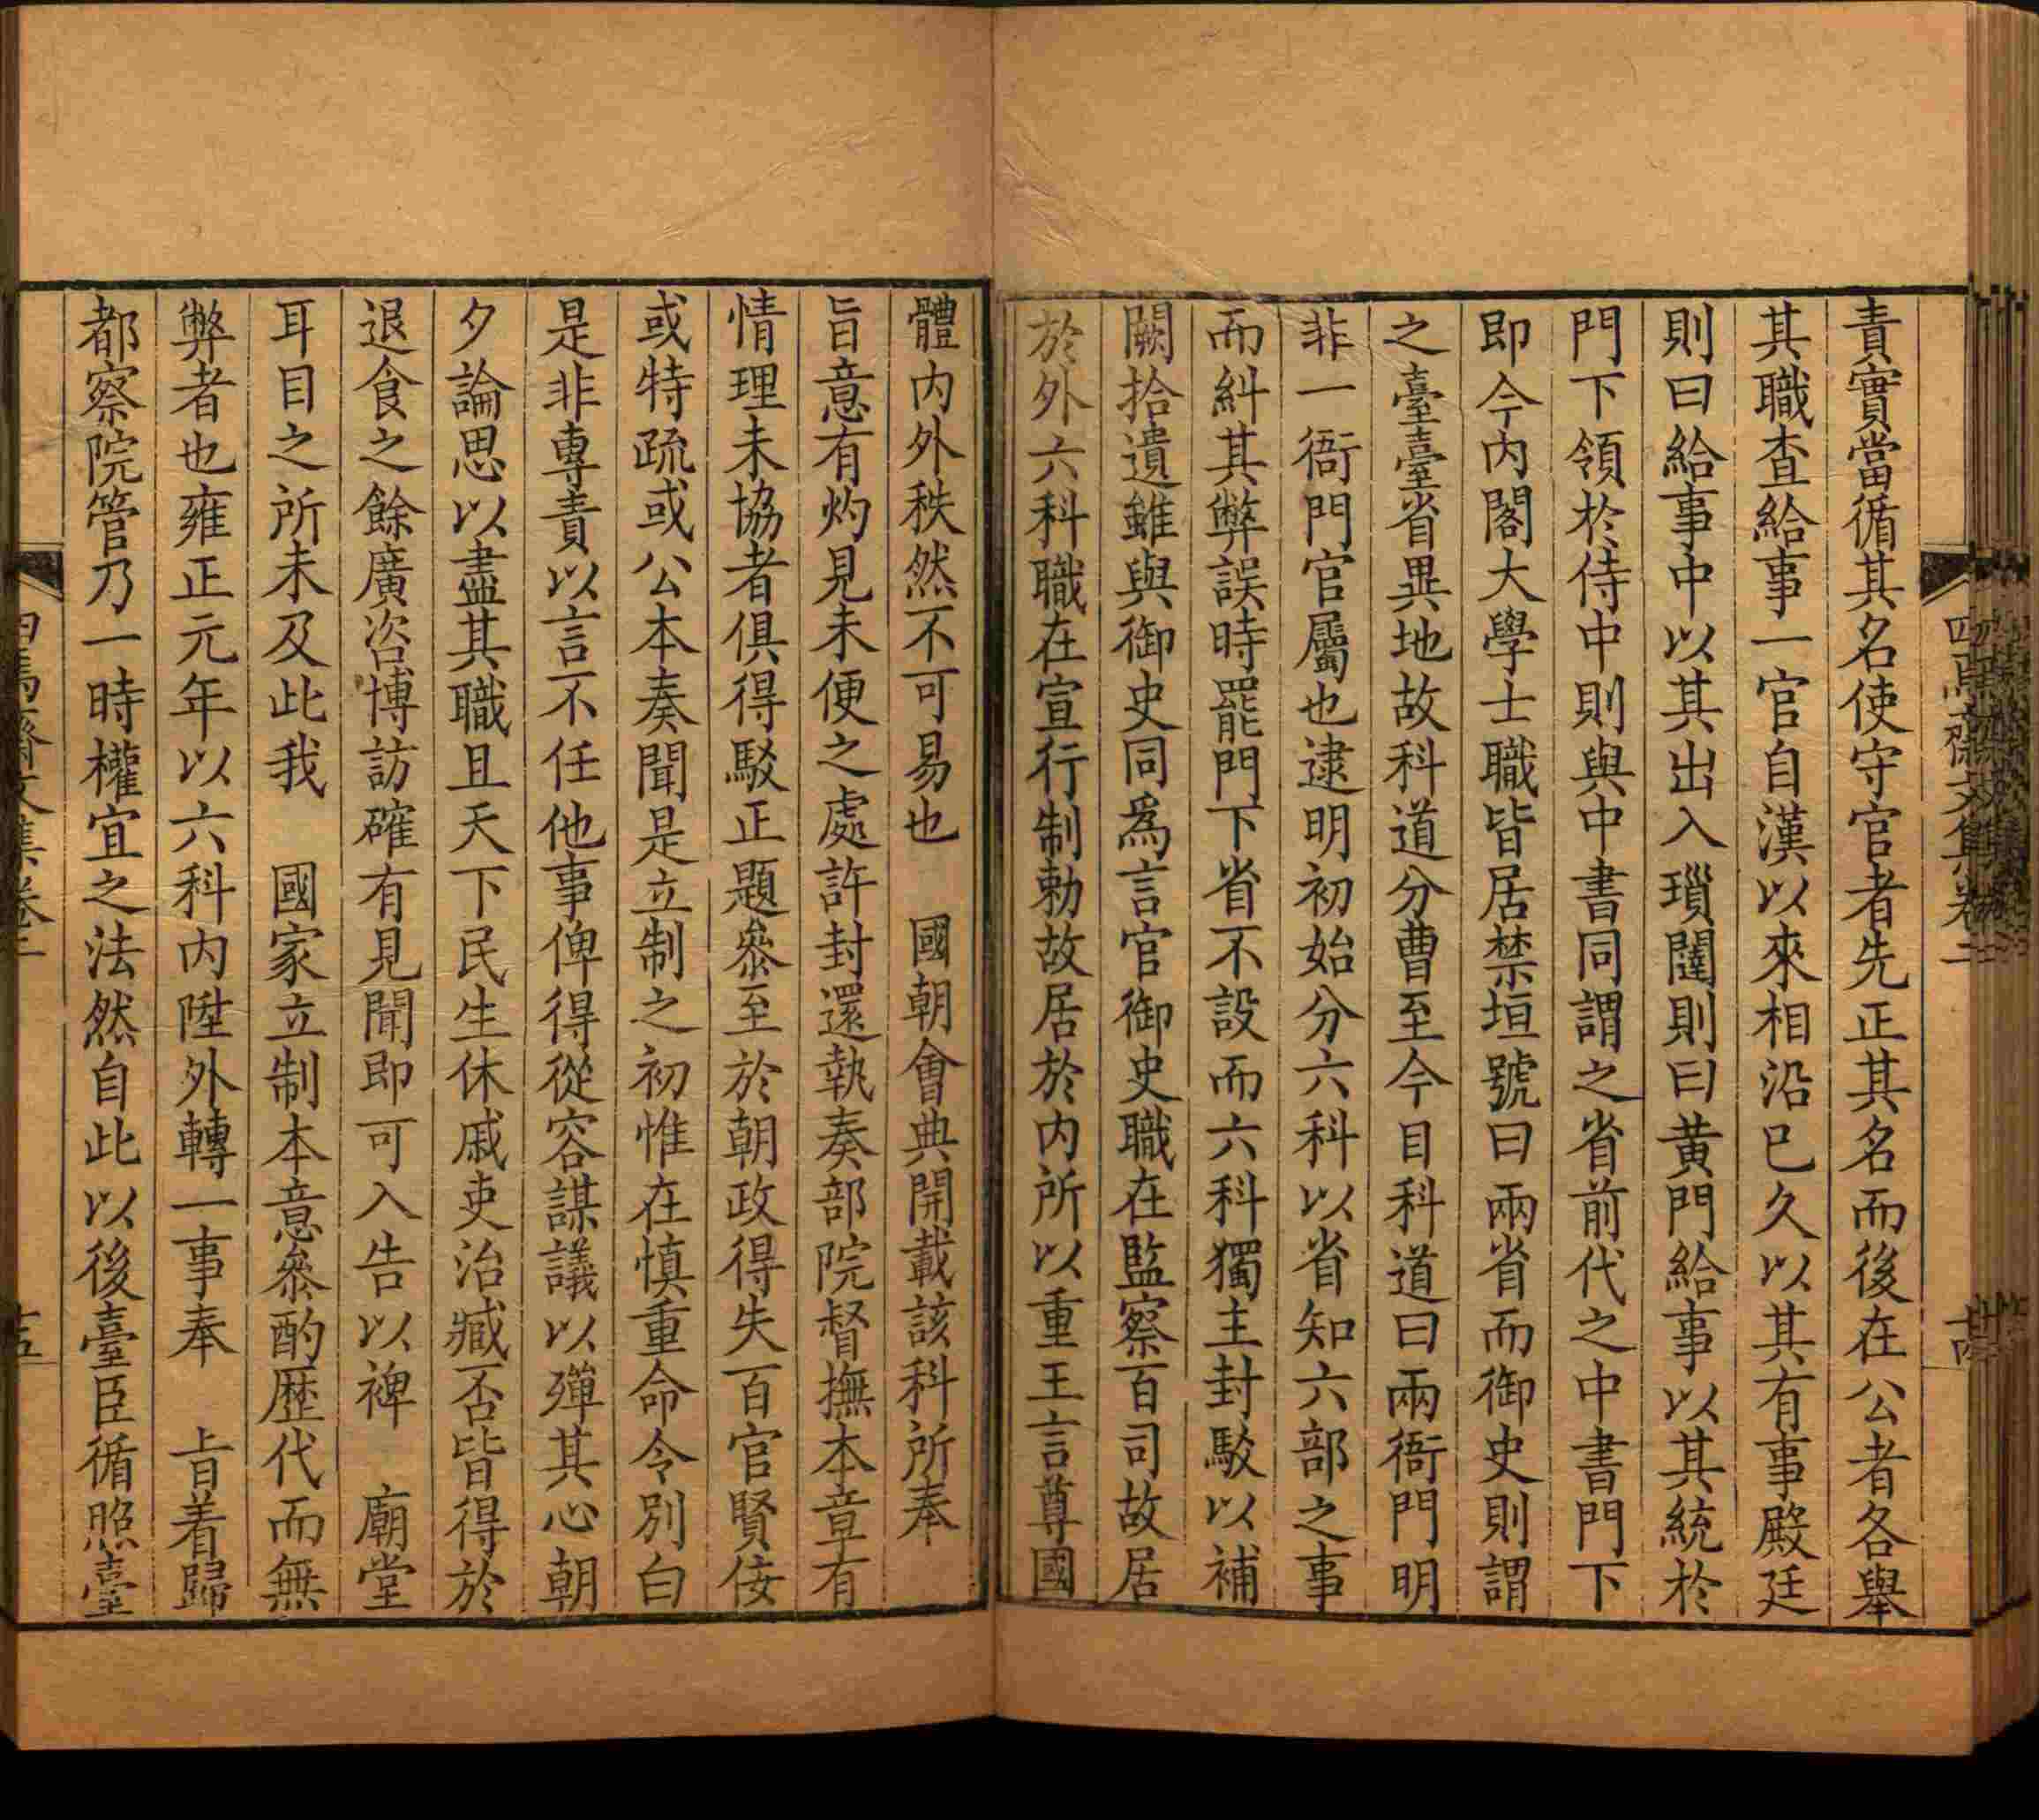 責實當循其名使守官者先正其名而後在公者各舉
其職查給事一官自漢以來相沿已久以其有事殿廷
則曰給事中以其出入瑣闥則曰黃門給事以其統於
門下領於侍中則與中書同謂之省前代之中書門下
即今內閣大學士職皆居禁垣號曰兩省而御史則謂
之臺臺省異地故科道分曹至今目科道曰兩衙門明
非一衙門官屬也逮明初始分六科以省知六部之事
而糾其弊誤時罷門下省不設而六科獨主封駁以補
闕拾遺雖與御史同爲言官御史職在監察百司故居
於外六科職在宣行制勅故居於內所以重王言尊國
體內外秩然不可易也 國朝會典開載該科所奉
旨意有灼見未便之處許封還執奏部院督撫本章有
情理未協者俱得駁正題參至於朝政得失百官賢佞
或特疏或公本奏聞是立制之初惟在慎重命令別白
是非專責以言不任他事俾得從容謀議以殫其心朝
夕論思以盡其職且天下民生休戚吏治臧否皆得於
退食之餘廣咨博訪確有見聞即可入告以裨 廟堂
耳目之所未及此我 國家立制本意參酌歷代而無
弊者也雍正元年以六科內陞外轉一事奉 旨着歸
都察院管乃一時權宜之法然自此以後臺臣循照臺
四焉齋文集卷二
十五